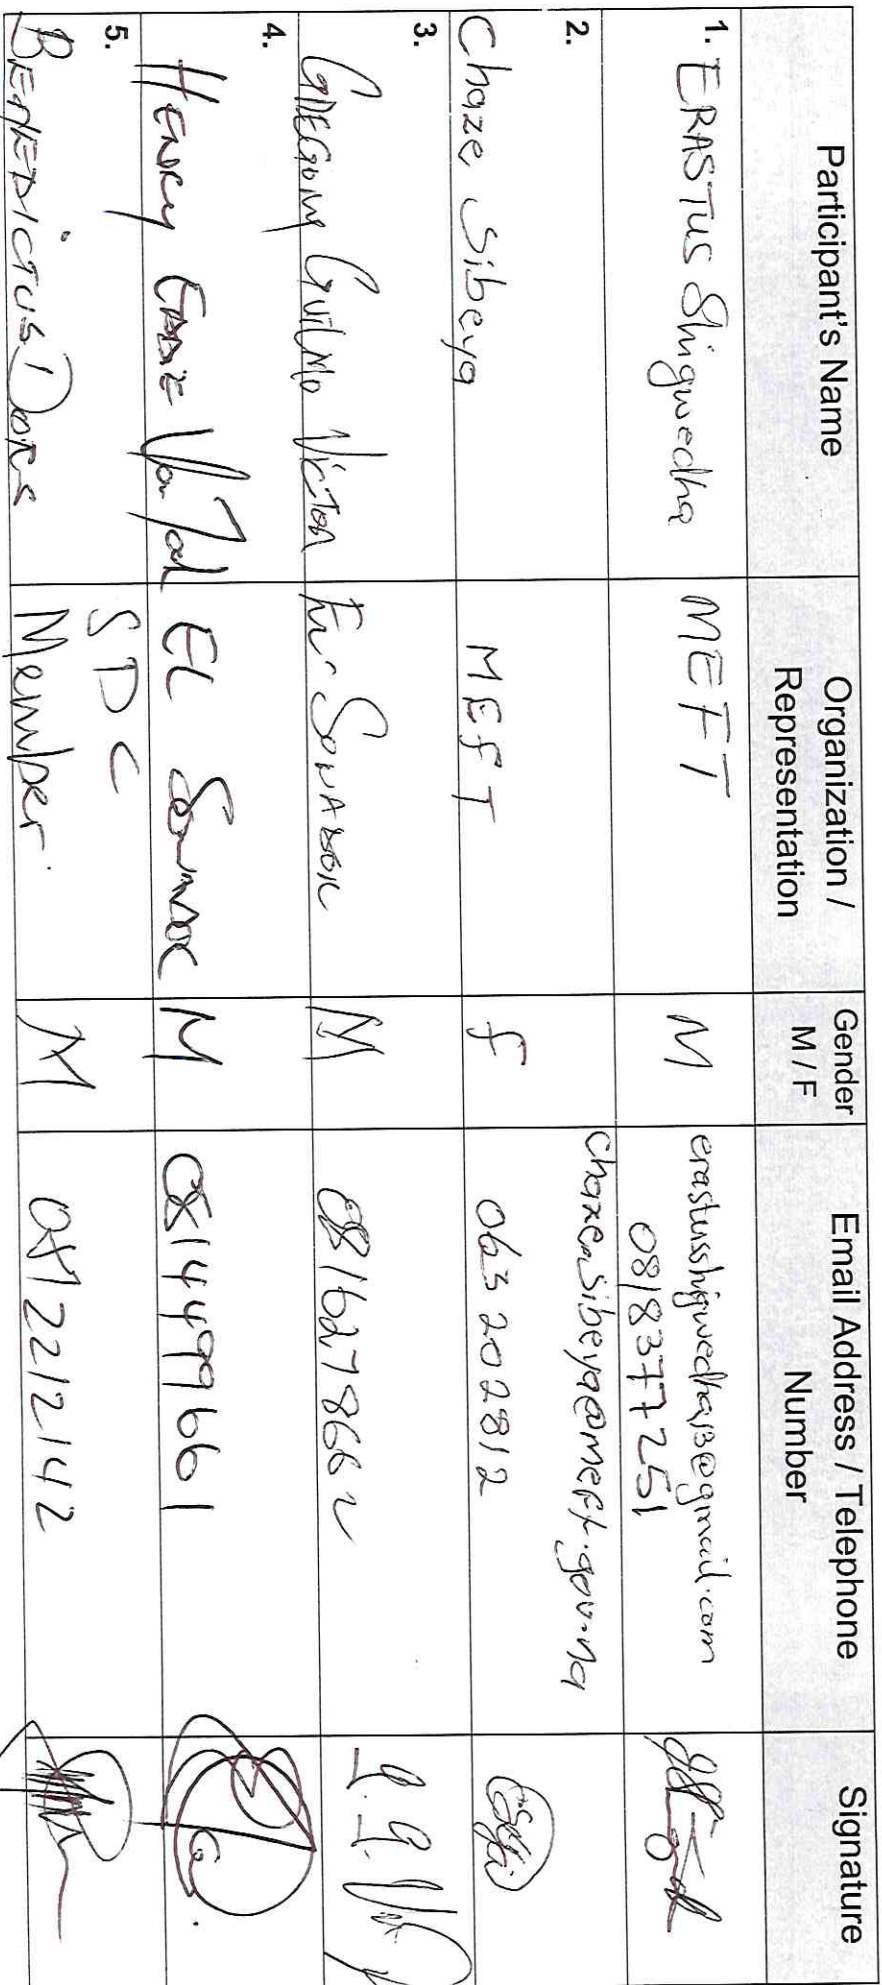 Participant's Name
Organization /
Representation
Gender
M / F
Email Address / Telephone
Number
Signature
1. ERASTUS Shigwedha
MEFT
M
erastusshigwedha13@gmail.com
0818377251
2.
Chaze Sibeya
MEFT
f
chaze.sibeya@meft.gov.na
063 202812
3.
GREGORY GUILMO VICTOR
M
0816278662
4.
HENRY
EC
M
0814499661
5.
BENEDICTUS
SDC
Member
M
0812212142